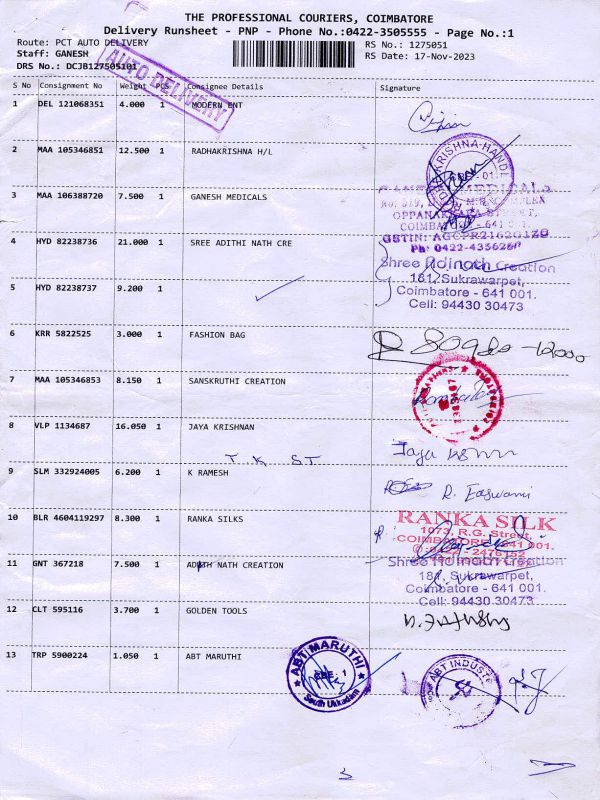 THE PROFESSIONAL COURIERS, COIMBATORE
Delivery Runsheet - PNP - Phone No.:0422-3505555 - Page No.:1
Route: PCT AUTO DELIVERY
RS No.: 1275051
Staff: GANESH
RS Date: 17-Nov-2023
DRS No.: DCJB127505101
AUTO DELIVERY
S No Consignment No Weight PCS Consignee Details Signature
1 DEL 121068351 4.000 1 MODERN ENT
2 MAA 105346851 12.500 1 RADHAKRISHNA H/L
3 MAA 106388720 7.500 1 GANESH MEDICALS
OPPANAKARA STREET,
COIMBATORE - 641 001.
Ph: 0422-4356260
4 HYD 82238736 21.000 1 SREE ADITHI NATH CRE
Shree Adinath Creation
181, Sukrawarpet,
Coimbatore - 641 001.
Cell: 94430 30473
5 HYD 82238737 9.200 1
6 KRR 5822525 3.000 1 FASHION BAG
7 MAA 105346853 8.150 1 SANSKRUTHI CREATION
8 VLP 1134687 16.050 1 JAYA KRISHNAN
T K ST
9 SLM 332924005 6.200 1 K RAMESH
R. Easwari
10 BLR 4604119297 8.300 1 RANKA SILKS
RANKA SILK
1073, R.G. Street,
COIMBATORE - 641 001.
11 GNT 367218 7.500 1 ADITH NATH CREATION
181, Sukrawarpet,
Coimbatore - 641 001.
Cell: 94430 30473
12 CLT 595116 3.700 1 GOLDEN TOOLS
13 TRP 5900224 1.050 1 ABT MARUTHI
ABT MARUTHI
CBE. 1
South Ukkadam